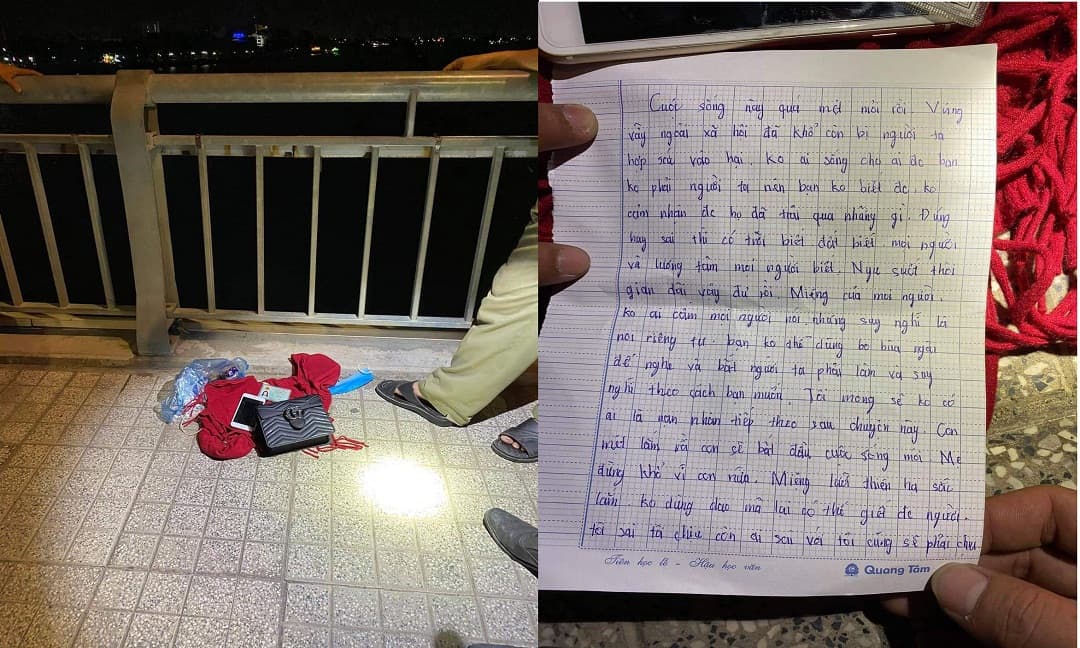 Cuộc sống này quá mệt mỏi rồi. Vùng
vẫy ngoài xã hội đã khổ còn bị người ta
hợp sức vào hại. Ko ai sống cho ai đc bạn
ko phải người ta nên bạn ko biết đc, ko
cảm nhận đc họ đã trải qua những gì. Đúng
hay sai thì có trời biết đất biết, mọi người
và lương tâm mọi người biết. Ngụ suốt thời
gian dài vậy đủ rồi. Miệng của mọi người,
ko ai cấm mọi người nói, nhưng suy nghĩ là
nơi riêng tư. bạn ko thể dùng bè bữa ngãi
để nghe và bắt người ta phải làm và suy
nghĩ theo cách bạn muốn. Tôi mong sẽ ko có
ai là nạn nhân tiếp theo sau chuyện này. Con
mệt lắm rồi con sẽ bắt đầu cuộc sống mới. Mẹ
đừng khổ vì con nữa. Miệng lưỡi thiên hạ sắc
lắm. ko dùng dao mà lại có thể giết đc người.
tôi sai tôi chịu còn ai sai với tôi cũng sẽ phải chịu
Tiên học lễ - Hậu học văn
Quang Tâm